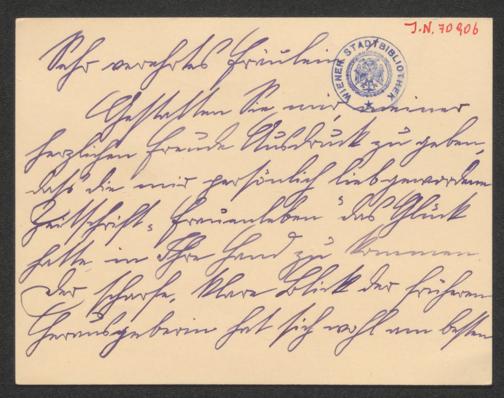 J.N. 70906
Sehr verehrtes Fräulein,
WIENER STADTBIBLIOTHEK
Gestatten Sie mir, meiner
herzlichen Freude Ausdruck zu geben,
daß die mir persönlich liebgewordene
Zeitschrift „Frauenleben" das Glück
hatte in Ihre Hand zu kommen.
Der scharfe, klare Blick der früheren
Herausgeberin hat sich wohl am besten